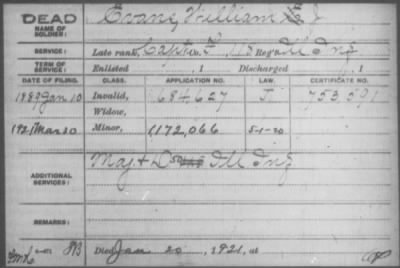 DEAD Evans, William E J
NAME OF SOLDIER:
SERVICE: Late rank, Capt Co. F, 118 Reg't Ill Inf
TERM OF SERVICE: Enlisted , 1 Discharged , 1
DATE OF FILING. CLASS. APPLICATION NO. LAW. CERTIFICATE NO.
1889 Jan 10 Invalid, 684,627 J 753,591
Widow,
1921 Mar 30 Minor, 1172,066 5-1-20
ADDITIONAL SERVICES: Maj + D 50 Ill Inf
REMARKS:
Died Jan 20, 1921, at